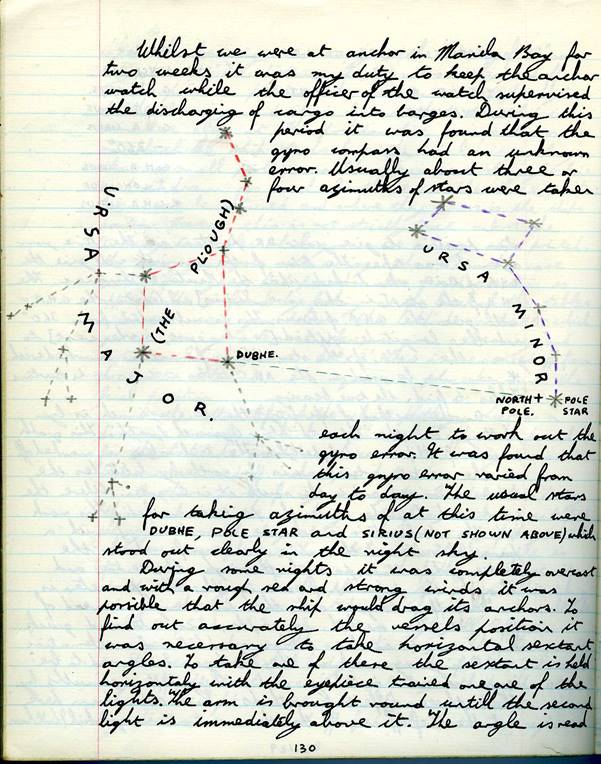 Whilst we were at anchor in Manila Bay for
two weeks it was my duty to keep the anchor
watch while the officer of the watch supervised
the discharging of cargo into barges. During this
period it was found that the
gyro compass had an unknown
error. Usually about three or
four azimuths of stars were taken
URSA MAJOR.
(THE PLOUGH)
URSA MINOR
DUBHE.
NORTH POLE.
POLE STAR
each night to work out the
gyro error. It was found that
this gyro error varied from
day to day. The usual stars
for taking azimuths of at this time were
DUBHE, POLE STAR and SIRIUS (NOT SHOWN ABOVE) which
stood out clearly in the night sky.
During some nights it was completely overcast
and with a rough sea and strong winds it was
possible that the ship would drag its anchors. To
find out accurately the vessels position it
was necessary to take horizontal sextant
angles. To take one of these the sextant is held
horizontaly with the eyepiece trained one one of the
lights. The arm is brought round untill the second
light is immediately above it. The angle is read
130